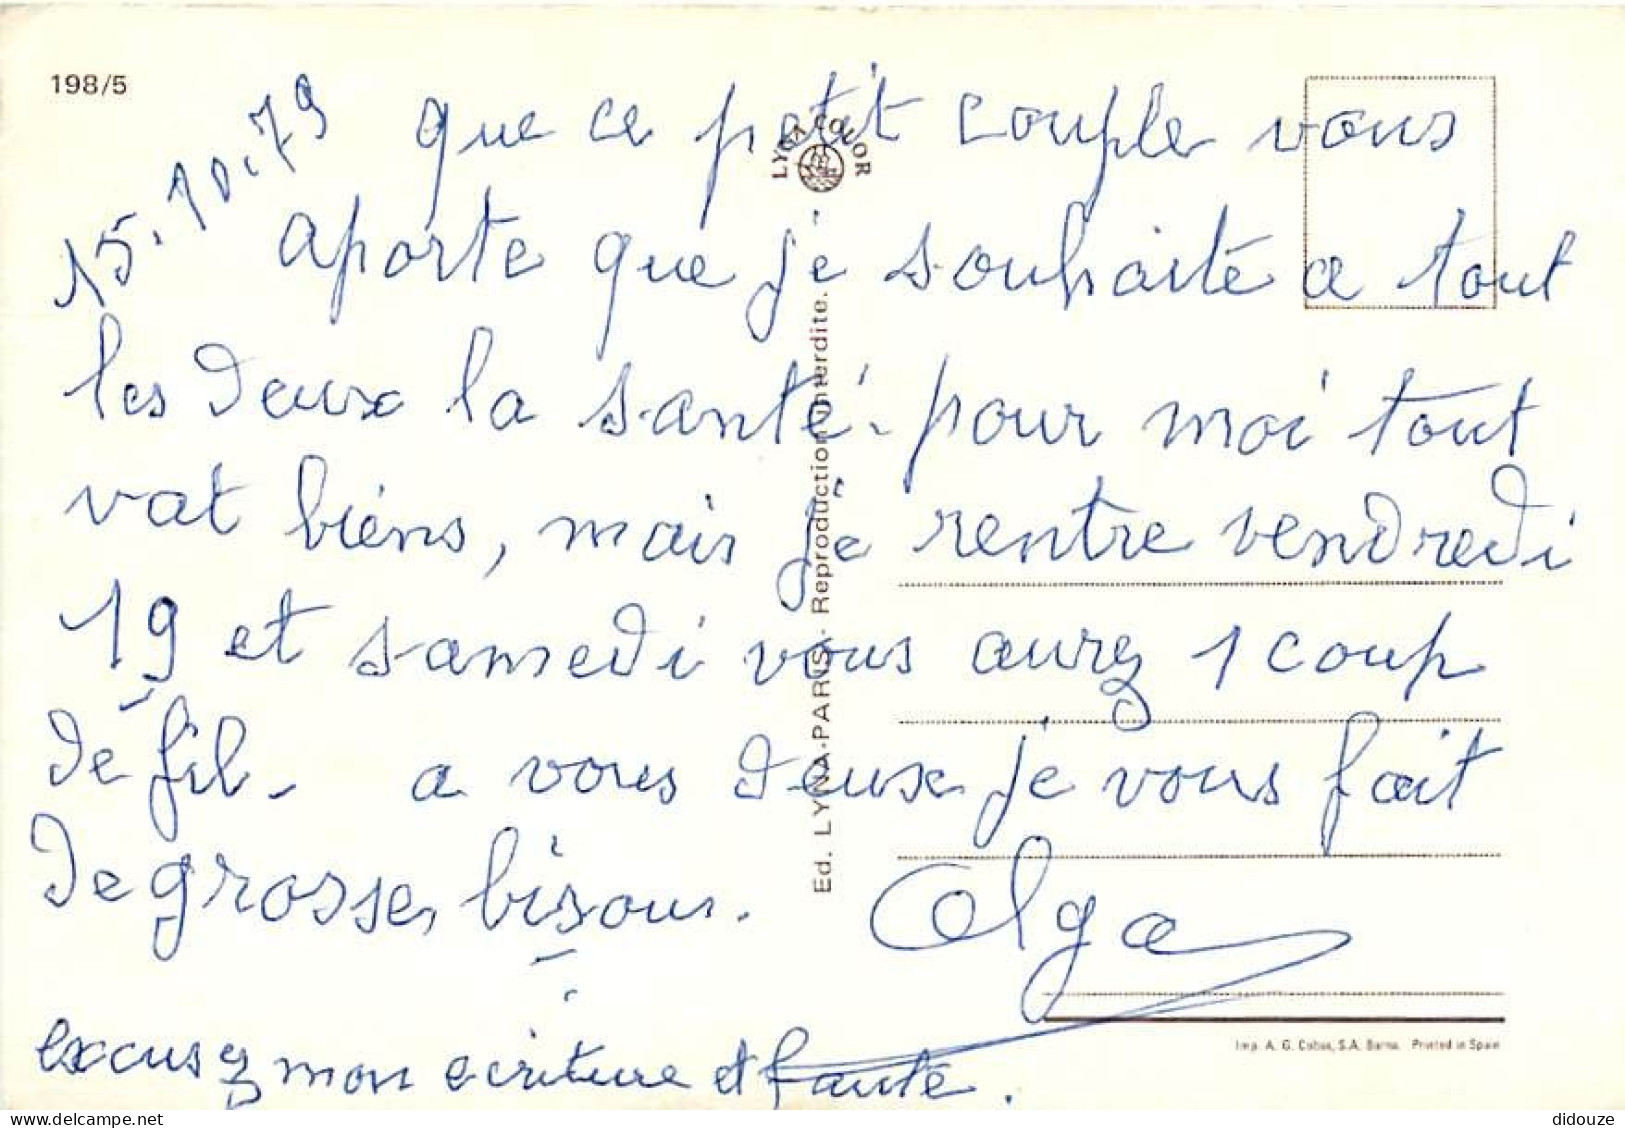 198/5
15.10.79
que ce petit couple vous
aporte que je souhaité a tout
les deux la santé. pour moi tout
vat biens, mais je rentre vendredi
19 et samedi vous aurez 1 coup
dé fil. a vous deux je vous fait
de grosse, bisous.
Olga
excusez mon ecriture et faute.
LYNA COLOR
Ed. LYNA-PARIS - Reproduction interdite.
Imp. A. G. Cobas, S.A. Barna. Printed in Spain
delcampe.net
didouze